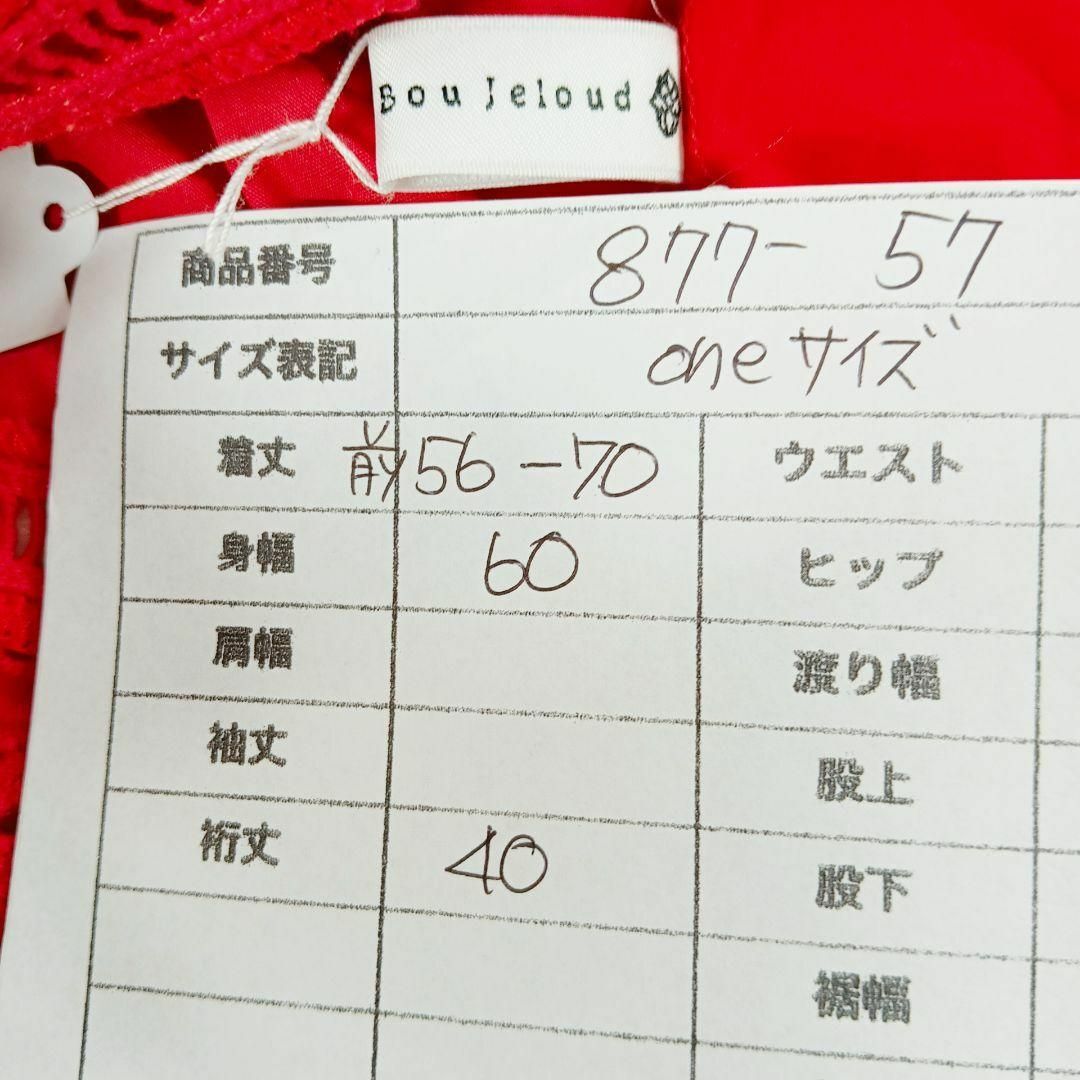 Bou Jeloud
商品番号 877- 57
サイズ表記 oneサイズ
着丈 前56-70 ウエスト
身幅 60 ヒップ
肩幅 渡り幅
袖丈 股上
裄丈 40 股下
裾幅